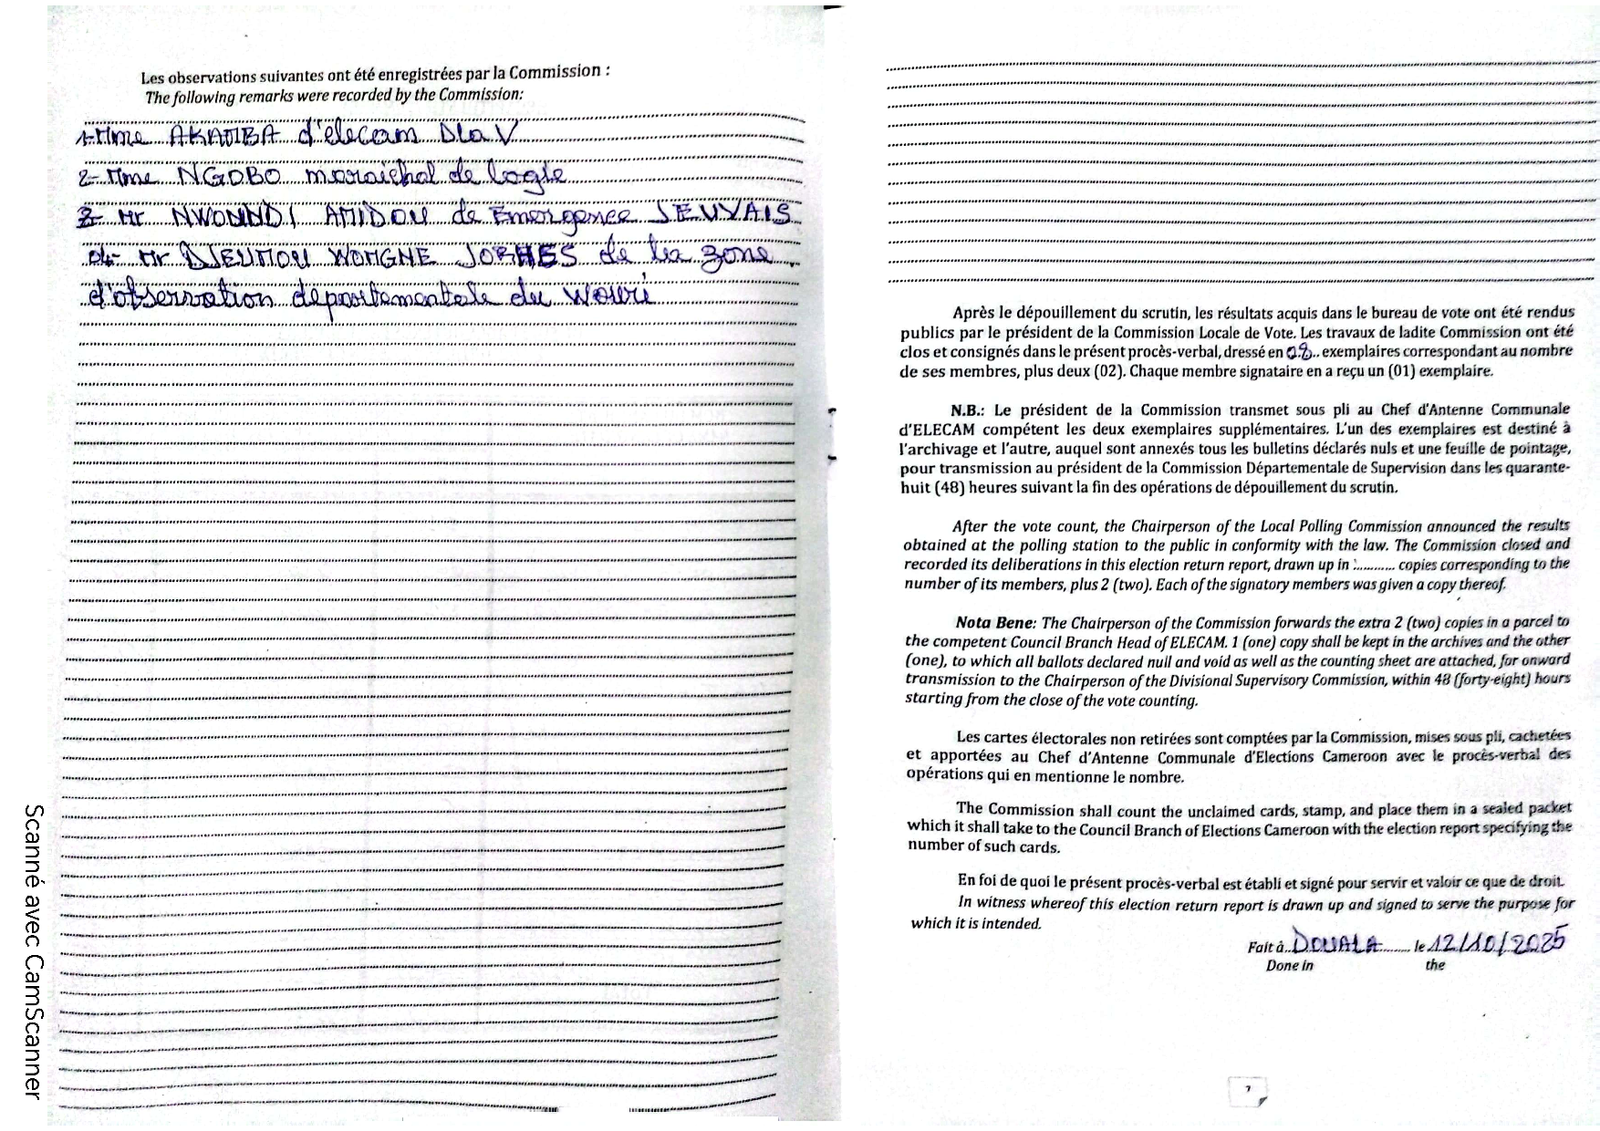 Les observations suivantes ont été enregistrées par la Commission :
The following remarks were recorded by the Commission:
1-Mme AKAMBA d'elecam Dla V
2- Mme NGOBO maraichal de logle
3- Mr NWOUNDI AMIDOU de Emergence JEUVAIS
04- Mr DJEUMOU WOMGNE JORHES de la zone
d'observation departementale du Wouri
Après le dépouillement du scrutin, les résultats acquis dans le bureau de vote ont été rendus
publics par le président de la Commission Locale de Vote. Les travaux de ladite Commission ont été
clos et consignés dans le présent procès-verbal, dressé en 08.. exemplaires correspondant au nombre
de ses membres, plus deux (02). Chaque membre signataire en a reçu un (01) exemplaire.
N.B.: Le président de la Commission transmet sous pli au Chef d'Antenne Communale
d'ELECAM compétent les deux exemplaires supplémentaires. L'un des exemplaires est destiné à
l'archivage et l'autre, auquel sont annexés tous les bulletins déclarés nuls et une feuille de pointage,
pour transmission au président de la Commission Départementale de Supervision dans les quarante-
huit (48) heures suivant la fin des opérations de dépouillement du scrutin.
After the vote count, the Chairperson of the Local Polling Commission announced the results
obtained at the polling station to the public in conformity with the law. The Commission closed and
recorded its deliberations in this election return report, drawn up in ........... copies corresponding to the
number of its members, plus 2 (two). Each of the signatory members was given a copy thereof.
Nota Bene: The Chairperson of the Commission forwards the extra 2 (two) copies in a parcel to
the competent Council Branch Head of ELECAM. 1 (one) copy shall be kept in the archives and the other
(one), to which all ballots declared null and void as well as the counting sheet are attached, for onward
transmission to the Chairperson of the Divisional Supervisory Commission, within 48 (forty-eight) hours
starting from the close of the vote counting.
Les cartes électorales non retirées sont comptées par la Commission, mises sous pli, cachetées
et apportées au Chef d'Antenne Communale d'Elections Cameroon avec le procès-verbal des
opérations qui en mentionne le nombre.
The Commission shall count the unclaimed cards, stamp, and place them in a sealed packet
which it shall take to the Council Branch of Elections Cameroon with the election report specifying the
number of such cards.
En foi de quoi le présent procès-verbal est établi et signé pour servir et valoir ce que de droit.
In witness whereof this election return report is drawn up and signed to serve the purpose for
which it is intended.
Fait à DOUALA le 12/10/2025
Done in the
7
Scanné avec CamScanner